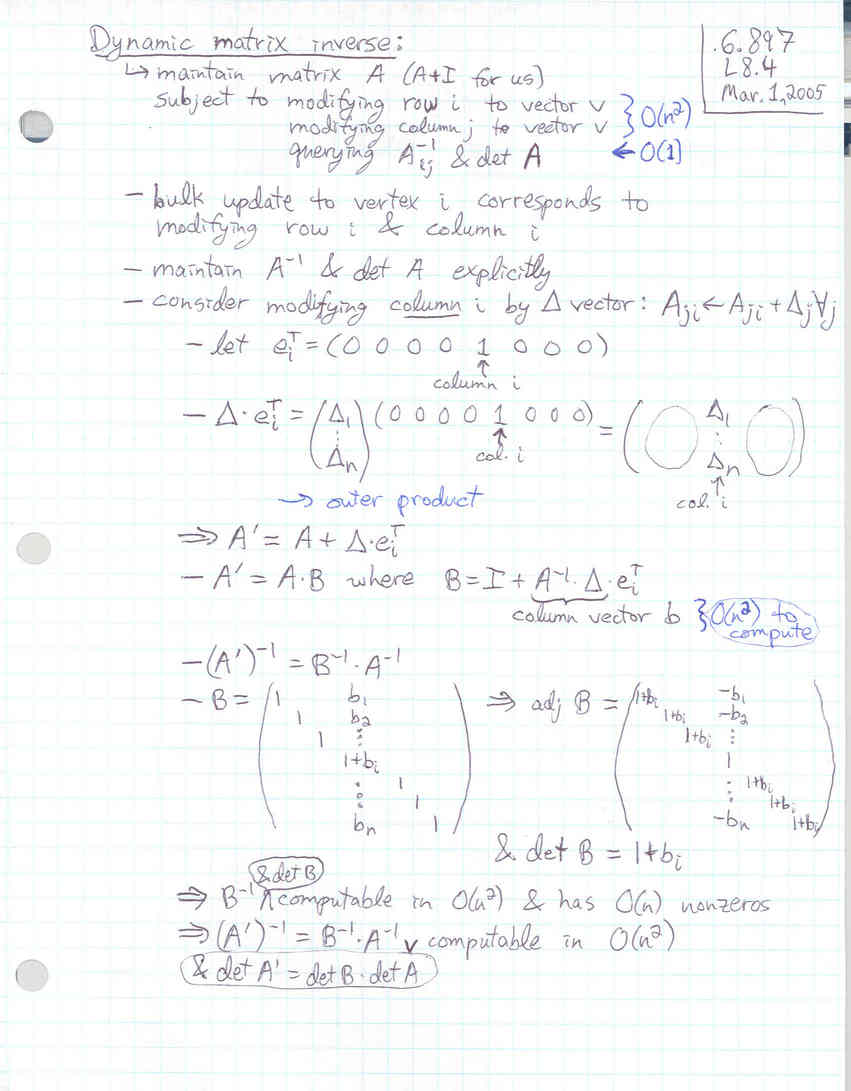 Dynamic matrix inverse:
.6.897
L8.4
Mar. 1, 2005
↳ maintain matrix A (A+I for us)
subject to modifying row i to vector v } O(n²)
modifying column j to vector v
querying A⁻¹ij & det A ← O(1)
- bulk update to vertex i corresponds to
modifying row i & column i
- maintain A⁻¹ & det A explicitly
- consider modifying column i by Δ vector: Aji ← Aji + Δj ∀j
- let eiᵀ = (0 0 0 0 1 0 0 0)
↑
column i
- Δ·eiᵀ = (Δ1 ⋮ Δn) (0 0 0 0 1 0 0 0) = (0 Δ1 ⋮ Δn 0)
↑ col. i ↑ col. i
→ outer product
⇒ A' = A + Δ·eiᵀ
- A' = A·B where B = I + A⁻¹·Δ·eiᵀ
column vector b } O(n²) to
compute
- (A')⁻¹ = B⁻¹·A⁻¹
- B = (1 b1 ⇒ adj B = (1+bi -b1
1 b2 1+bi -b2
1 ⋮ 1+bi ⋮
1+bi 1
⋮ 1 ⋮ 1+bi
1 1+bi
bn 1) -bn 1+bi)
& det B = 1+bi
& det B
⇒ B⁻¹ ∧ computable in O(n²) & has O(n) nonzeros
⇒ (A')⁻¹ = B⁻¹·A⁻¹ ∨ computable in O(n²)
& det A' = det B · det A